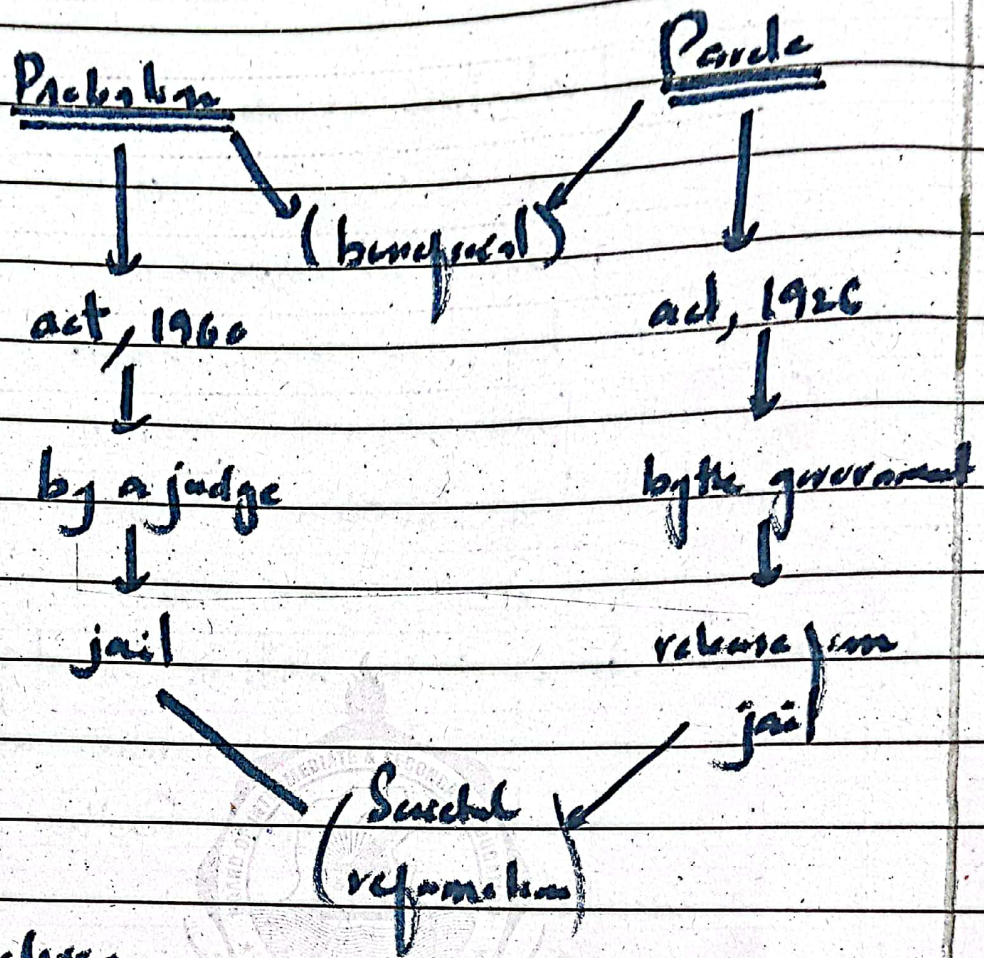 Probation
Parole
(beneficial)
act, 1960
act, 1926
by a judge
by the government
jail
release from
jail
(Societal
reformation)